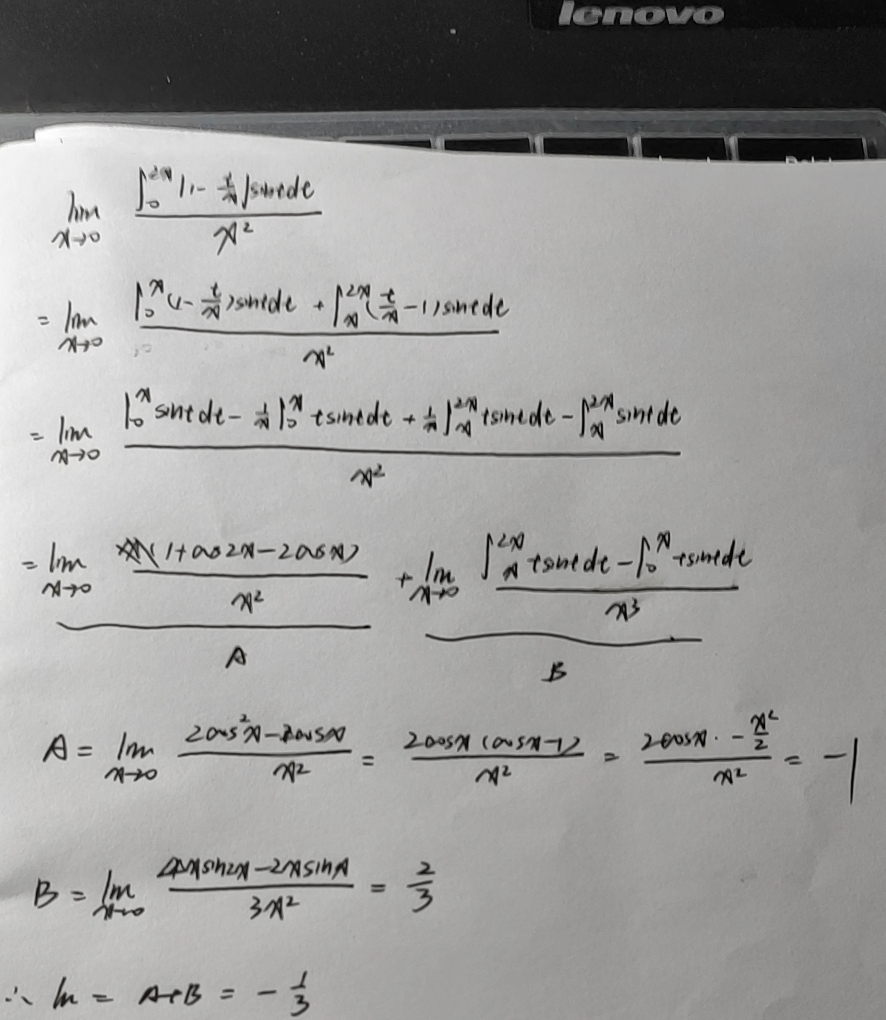 lenovo
lim_{x→0} \frac{∫_0^{2x} |1 - \frac{t}{x}| sint dt}{x^2}
= lim_{x→0} \frac{∫_0^x (1 - \frac{t}{x}) sint dt + ∫_x^{2x} (\frac{t}{x} - 1) sint dt}{x^2}
= lim_{x→0} \frac{∫_0^x sint dt - \frac{1}{x} ∫_0^x t sint dt + \frac{1}{x} ∫_x^{2x} t sint dt - ∫_x^{2x} sint dt}{x^2}
= lim_{x→0} \frac{(1 + cos2x - 2cosx)}{x^2} + lim_{x→0} \frac{∫_x^{2x} t sint dt - ∫_0^x t sint dt}{x^3}
A B
A = lim_{x→0} \frac{2cos^2x - 2cosx}{x^2} = \frac{2cosx (cosx - 1)}{x^2} = \frac{2cosx · -\frac{x^2}{2}}{x^2} = -1
B = lim_{x→0} \frac{4x sin2x - 2x sinx}{3x^2} = \frac{2}{3}
∴ lim = A + B = -\frac{1}{3}